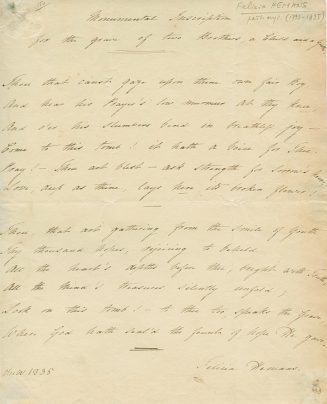 Felicia HEMANS
poet. aut. (1793-1835)
Monumental Inscription
for the grave of two Brothers, a Child and a
Thou that canst gaze upon thine own fair boy
And hear his Prayer's low murmur at thy knee,
And o'er his slumbers bend in breathless joy—
Come to this tomb! it hath a voice for thee.
Pray!—Thou art blest—ask strength for sorrow's hour;
Love, such as thine, lays here its broken flower.
Thou that art gathering from the smile of youth
Thy thousand hopes, rejoicing to behold
All the heart's depths before thee, bright with truth,
All the mind's treasures silently unfold;
Look on this tomb!—to thee too speaks the grave
Where God hath seal'd the fount of hope He gave.
Felicia Hemans.
1835